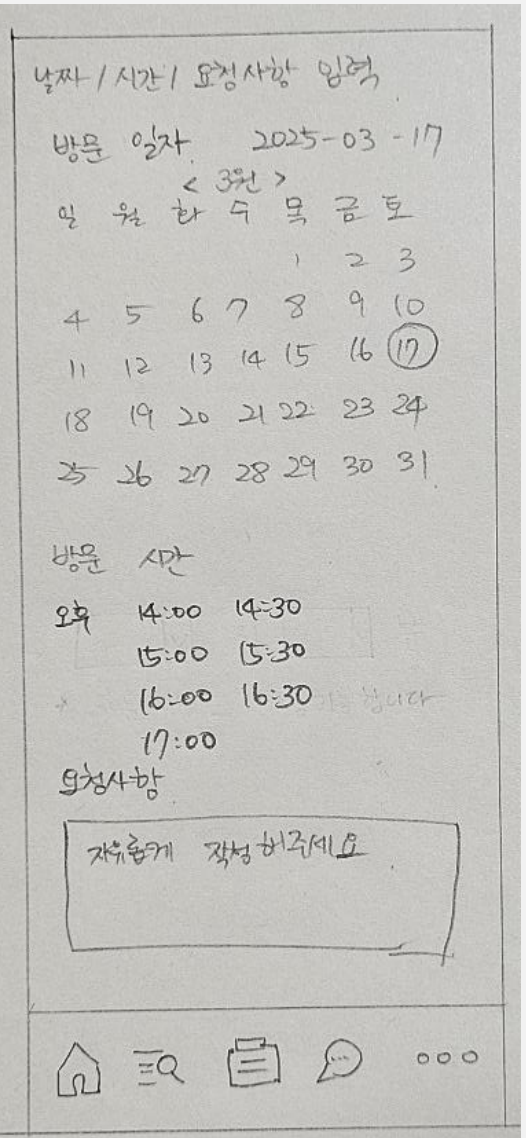 날짜 / 시간 / 요청사항 입력
방문 일자 2025-03-17
< 3월 >
일 월 화 수 목 금 토
1 2 3
4 5 6 7 8 9 10
11 12 13 14 15 16 17
18 19 20 21 22 23 24
25 26 27 28 29 30 31
방문 시간
오후 14:00 14:30
15:00 15:30
16:00 16:30
17:00
요청사항
자유롭게 작성해주세요